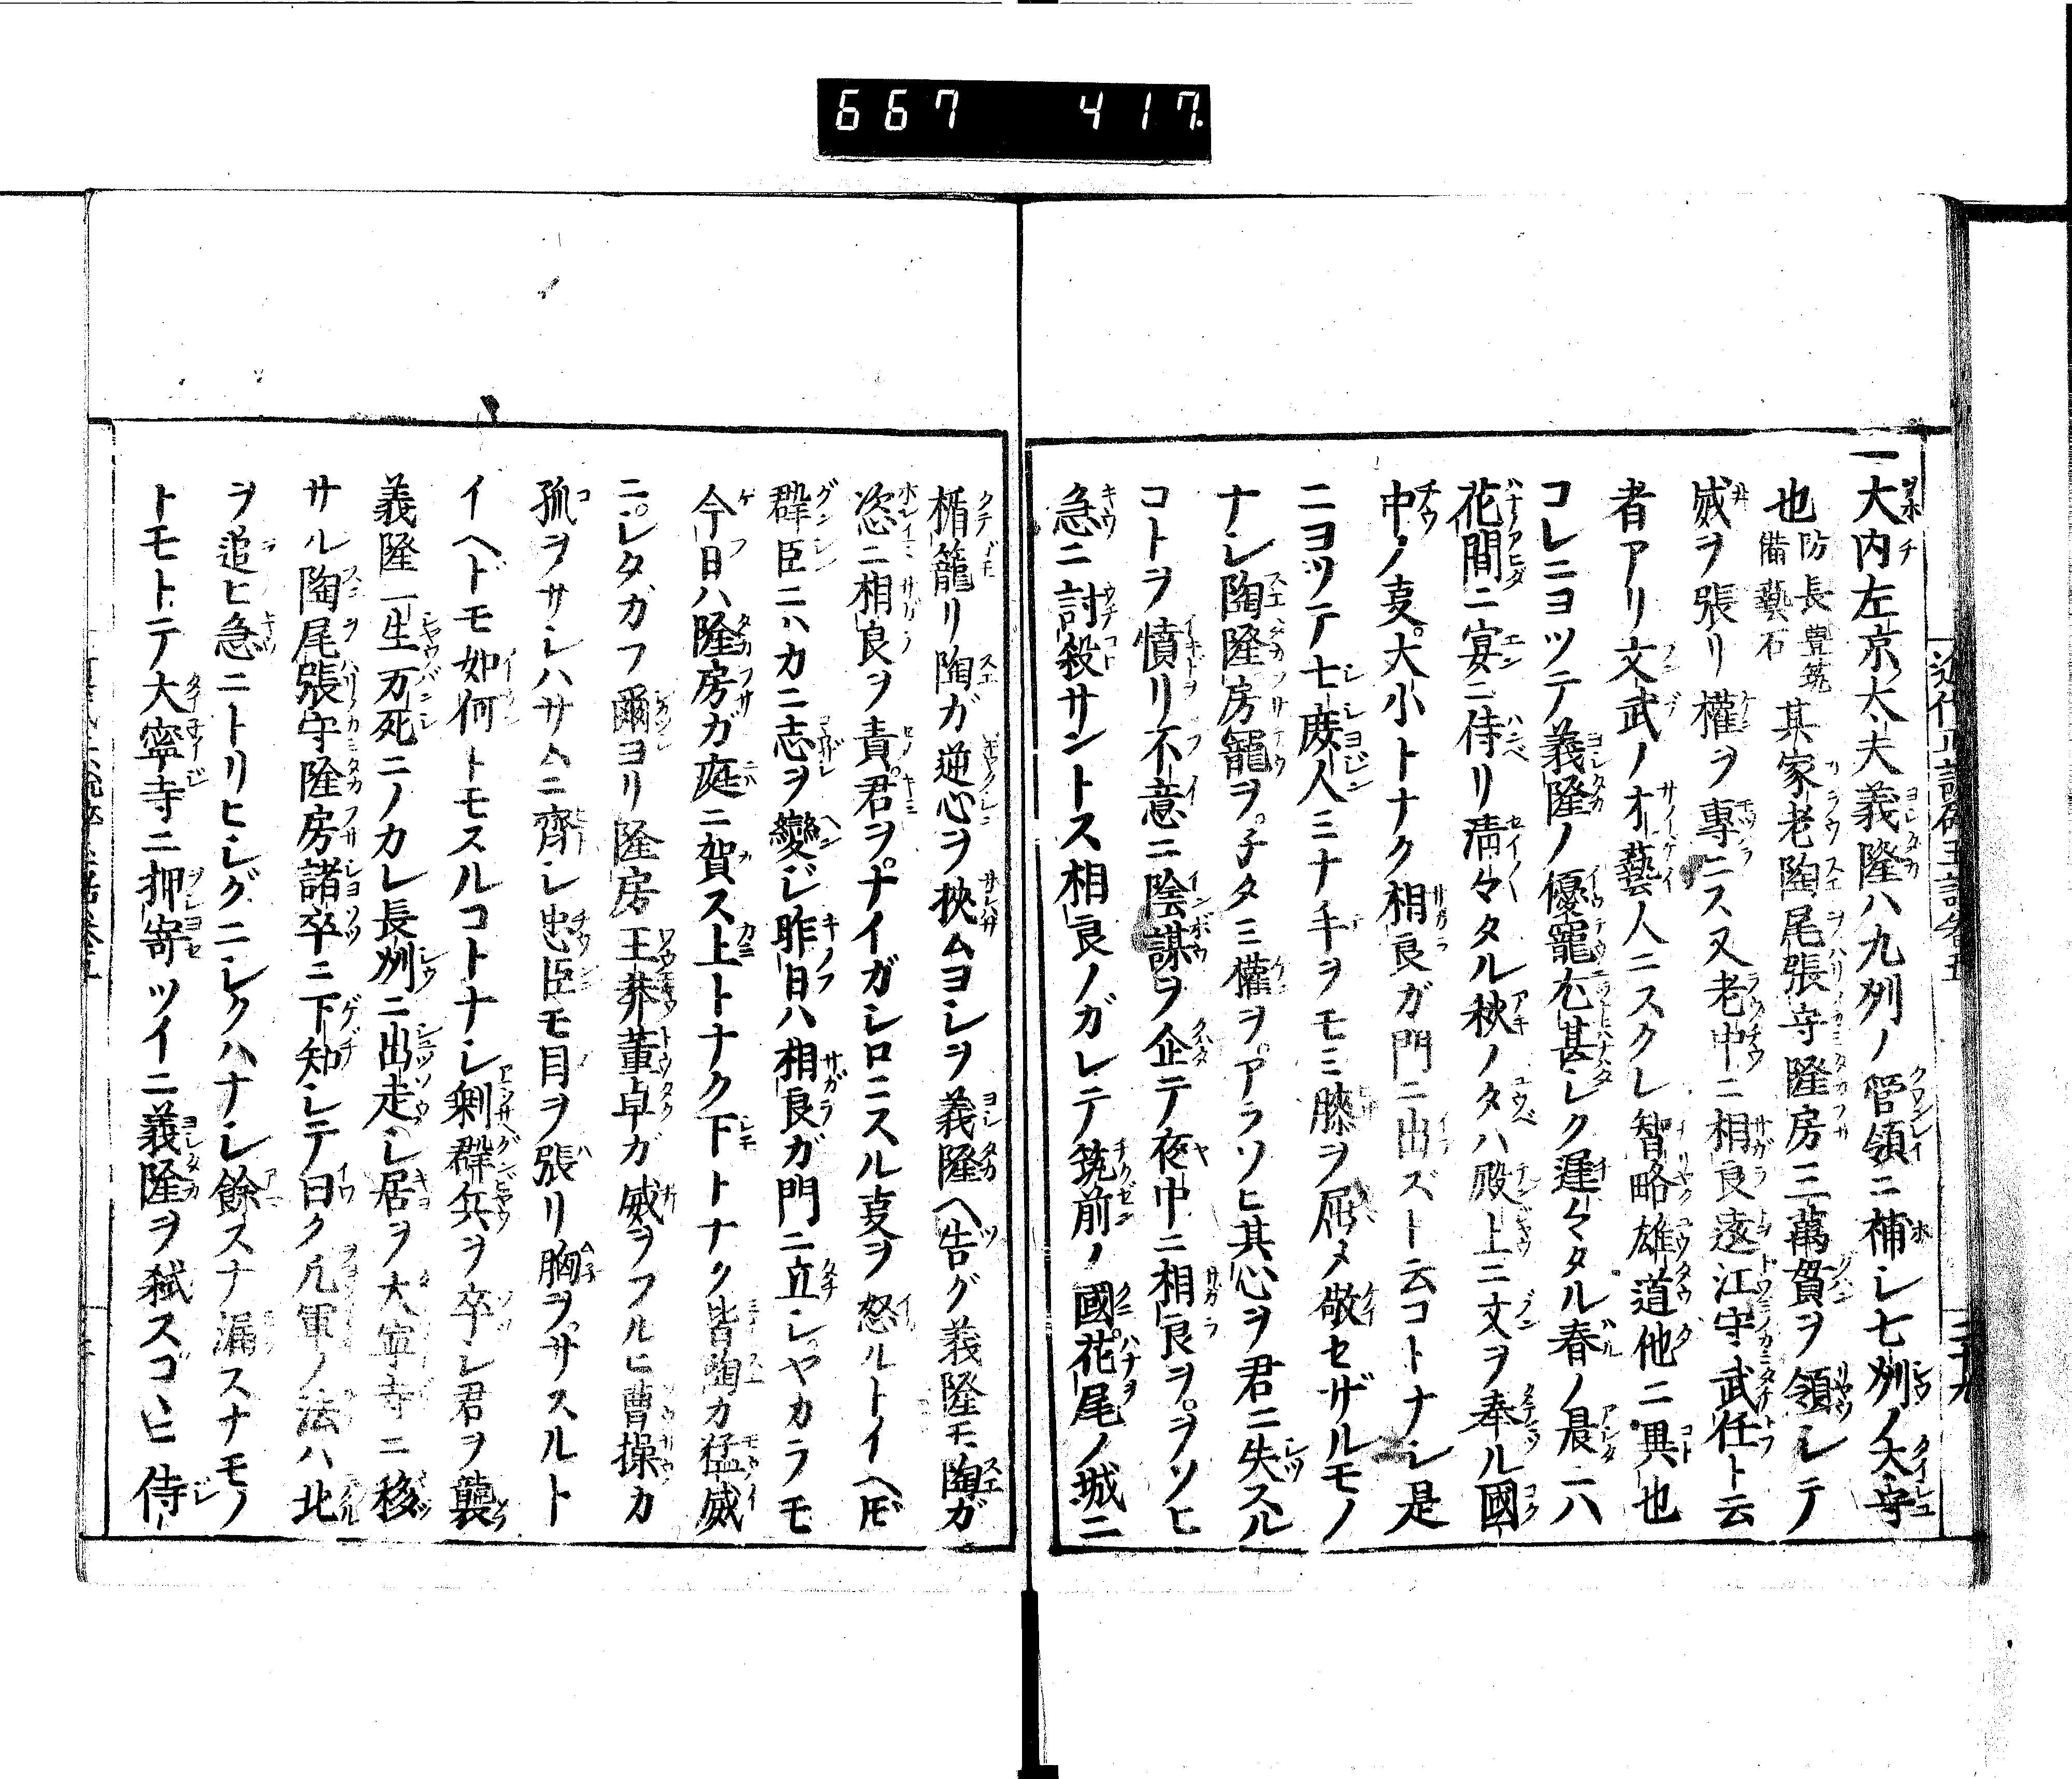 667 417
一大内左京大夫義隆ハ九刕ノ管領ニ補シ七刕ノ大守
也 防長豊筑備藝石 其家老陶尾張守隆房三萬貫ヲ領シテ
威ヲ張リ權ヲ專ニス又老中ニ相良遠江守武任ト云
者アリ文武ノ才藝人ニスクレ智略雄道他ニ異也
コレニヨツテ義隆ノ優寵尤甚シク遲々タル春ノ晨ニハ
花間ニ宴ニ侍リ淸々タル秋ノタハ殿上ニ文ヲ奉ル國
中ノ夏大小トナク相良ガ門ニ出ズト云コトナシ是
ニヨツテ七庻人ミナ手ヲモミ膝ヲ屈メ敬セザルモノ
ナシ陶隆房寵ヲ子タミ權ヲアラソヒ其心ヲ君ニ失スル
コトヲ憤リ不意ニ陰謀ヲ企テ夜中ニ相良ヲヲソヒ
急ニ討殺サントス相良ノガレテ筑前ノ國花尾ノ城ニ
楯籠リ陶ガ逆心ヲ挾ムヨシヲ義隆ヘ告グ義隆モ陶ガ
恣ニ相良ヲ責君ヲナイガシロニスル夏ヲ怒ルトイヘ𪜈
群臣ニハカニ志ヲ變ジ昨日ハ相良ガ門ニ立シヤカラモ
今日ハ隆房ガ庭ニ賀ス上トナク下トナク皆陶カ猛威
ニシタガフ爾ヨリ隆房王莽董卓ガ威ヲフルヒ曹操カ
孤ヲサシハサムニ齊シ忠臣モ目ヲ張リ胸ヲサスルト
イヘドモ如何トモスルコトナシ剰群兵ヲ卒シ君ヲ襲
義隆一生万死ニノカレ長刕ニ出走シ居ヲ大寧寺ニ移
サル陶尾張守隆房諸卒ニ下知シテ曰ク凡軍ノ法ハ北
ヲ追ヒ急ニトリヒシグニシクハナシ餘スナ漏スナモノ
トモトテ大寧寺ニ押寄ツイニ義隆ヲ弑スゴヒ侍